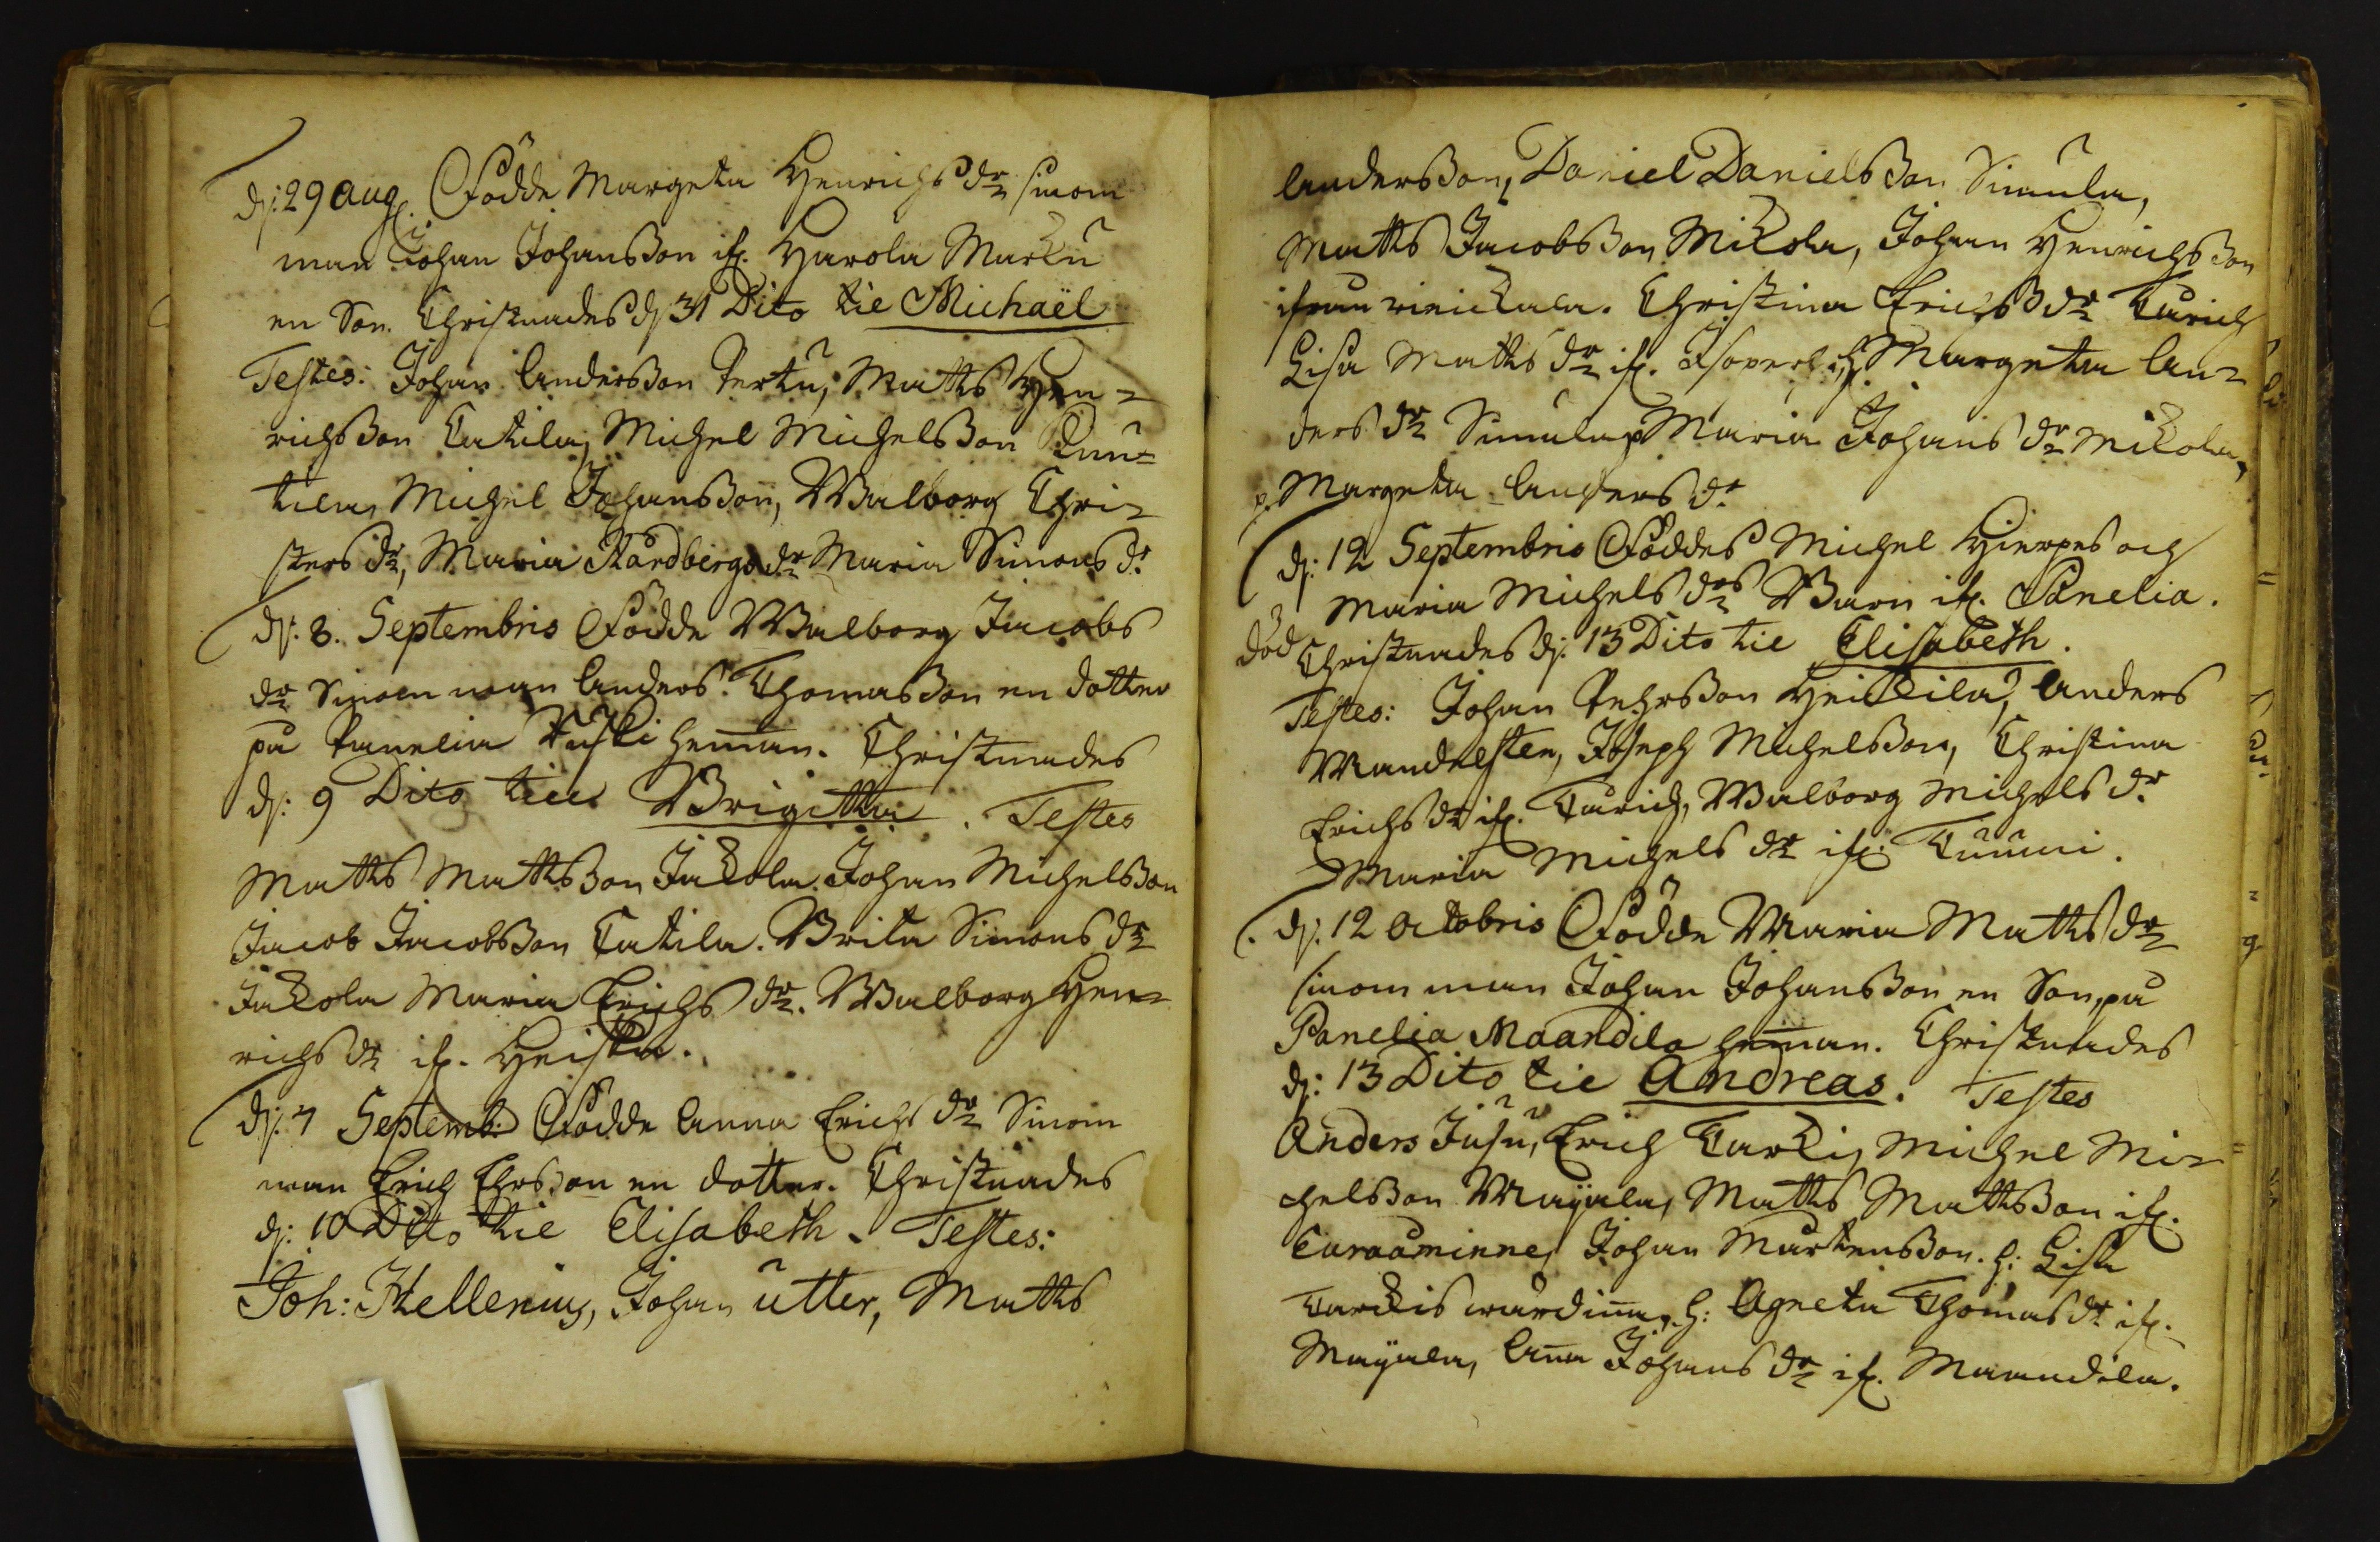 d: 29 Aug. Födde Margeta Henrichs dr sinom
man Johan Johansson if. Harola Marku
en Son. Christnades d 31 Dito til Michaël
Testes: Johan Andersson Pertu, Matts Hen=
richsson Catila, Michel Michelsson
tila, Michel Johansson, Walborg Chri=
sters dr, Maria Nordbergs dr Maria Simons dr
d: 8. Septembris Födde Walborg Jacobs
dr Sinom man Anders Thomasson en dotter
på Panelia Tuski heman. Christnades
d: 9 Dito till Brigitta. Testes
Matts Mattsson Jakola. Johan Michelsson
Jacob Jacobsson Catila. Brita Simons dr
Jakola Maria Erichs dr. Walborg Hen=
richs dr if. Heiska.
d: 7 Septemb: Födde Anna Erichs dr Sinom
man Erich Ehrsson en dotter. Christnades
d: 10 Dito til Elisabeth. Testes:
Joh: Hellenius, Johan utter, Matts
Andersson, Daniel Danielsson Simula,
Matts Jacobsson Mikola, Johan Henrichsson
ifrån. Christina Erichs dr Turich
Lisa Matts dr if. Margeta An=
ders dr Simula, Maria Johans dr Mikola,
p. Margeta Anders dr
d: 12 Septembris Föddes Michel Hierpes och
Maria Michels drs Barn if. Panelia.
död Christnades d: 13 Dito til Elisabeth.
Testes: Johan Pehrsson Heickila, Anders
Mandelsten, Joseph Michelsson, Christina
Erichs dr if. Turich, Walborg Michels dr
Maria Michels dr if. Tuumi.
d: 12 Octobris Födde Maria Matts dr
sinom man Johan Johansson en Son, på
Panelia Maandila heman. Christnades
d: 13 Dito til Andreas. Testes
Anders Jusu, Erich Tarkis, Michel Mi=
chelsson Mayala, Matts Mattsson if.
Euraåminne, Johan Mårtensson. h: Lisa
Tarckis wärdinna, h: Agneta Thomas dr if.
Mayala, Anna Johans dr if. Maandila.